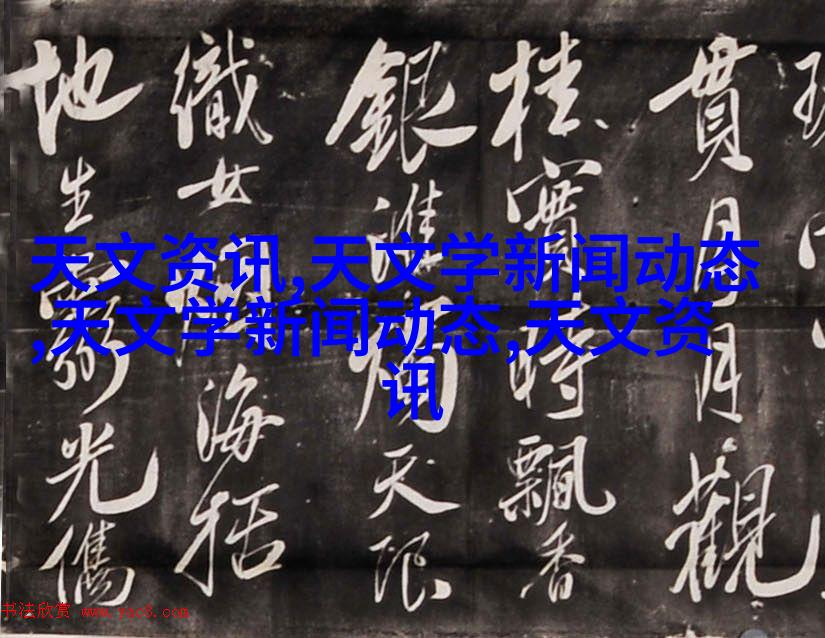 天文资讯,天文学新闻动态
,天文学新闻动态,天文资
讯
貫月月觀
桂實時飄香
銀淮天限
織女海括
地生光儁
书法欣赏 www.yac8.com